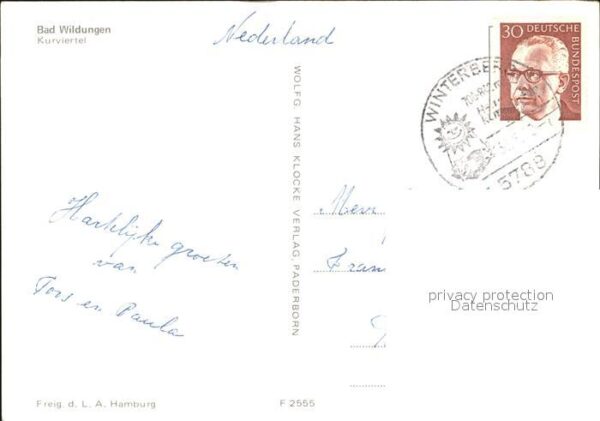 Bad Wildungen
Kurviertel
Nederland
30 DEUTSCHE BUNDESPOST
WINTERBERG
5788
WOLFG. HANS KLOCKE VERLAG, PADERBORN
Hartelijke groeten
van
Toos en Paula
Mevr
Fran
privacy protection
Datenschutz
Freig. d. L. A. Hamburg
F 2555